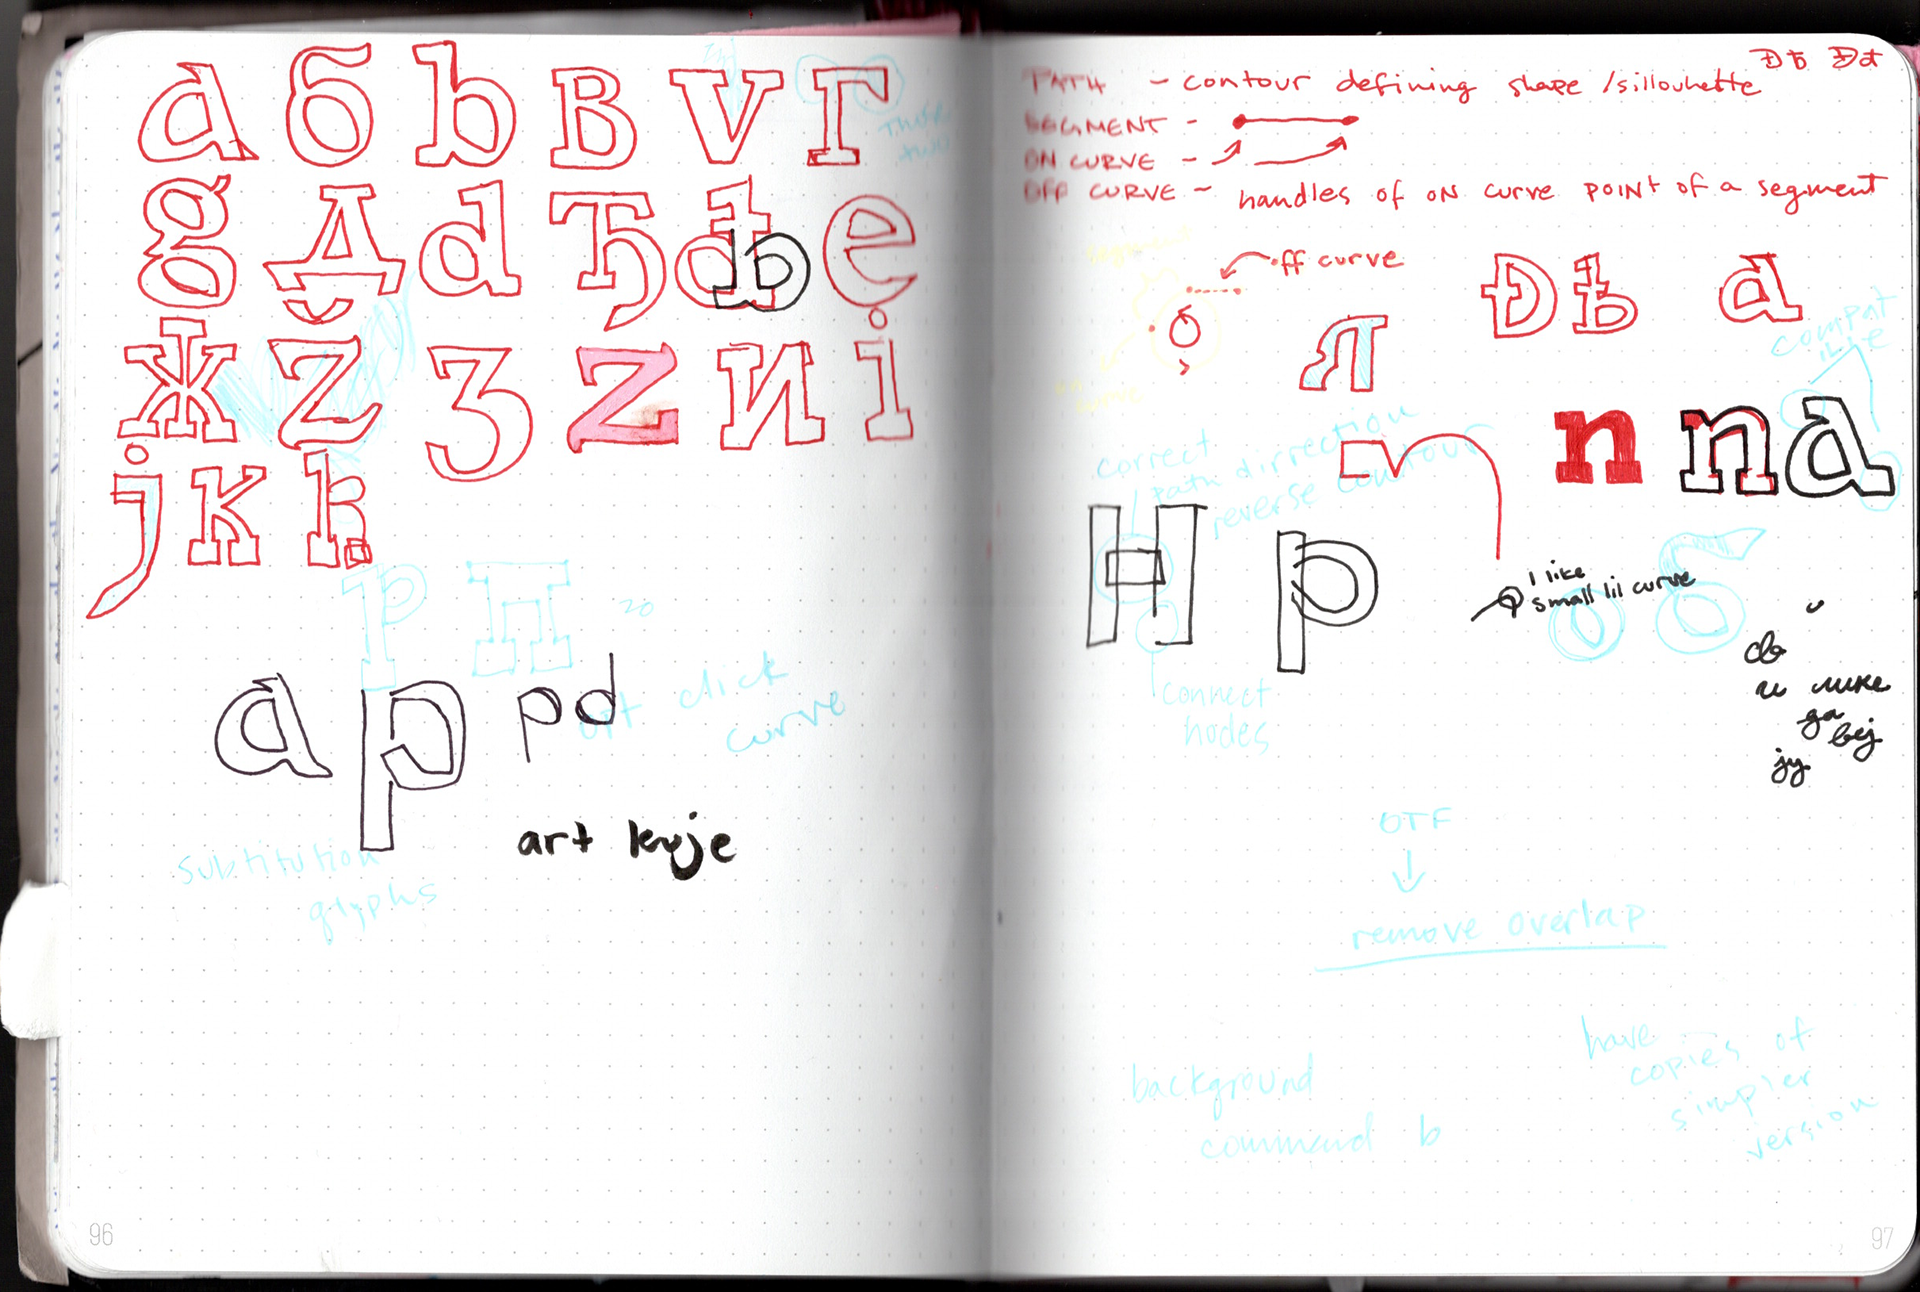 а б b в v г
g д d ђ e
ж z з z и i
j к k
p п 20
a p p d
art click
curve
art kuje
substitution
glyphs
96
Đђ Dd
PATH - contour defining shape /sillouhette
SEGMENT -
ON CURVE -
OFF CURVE - handles of ON curve point of a segment
off curve
Đ ђ a
л
compat
ible
n n a
correct
path dirrection
reverse contour
H p
I like
small lil curve
б
connect
nodes
ga
bej
jy
OTF
remove overlap
have
copies of
simpler
version
background
command b
97